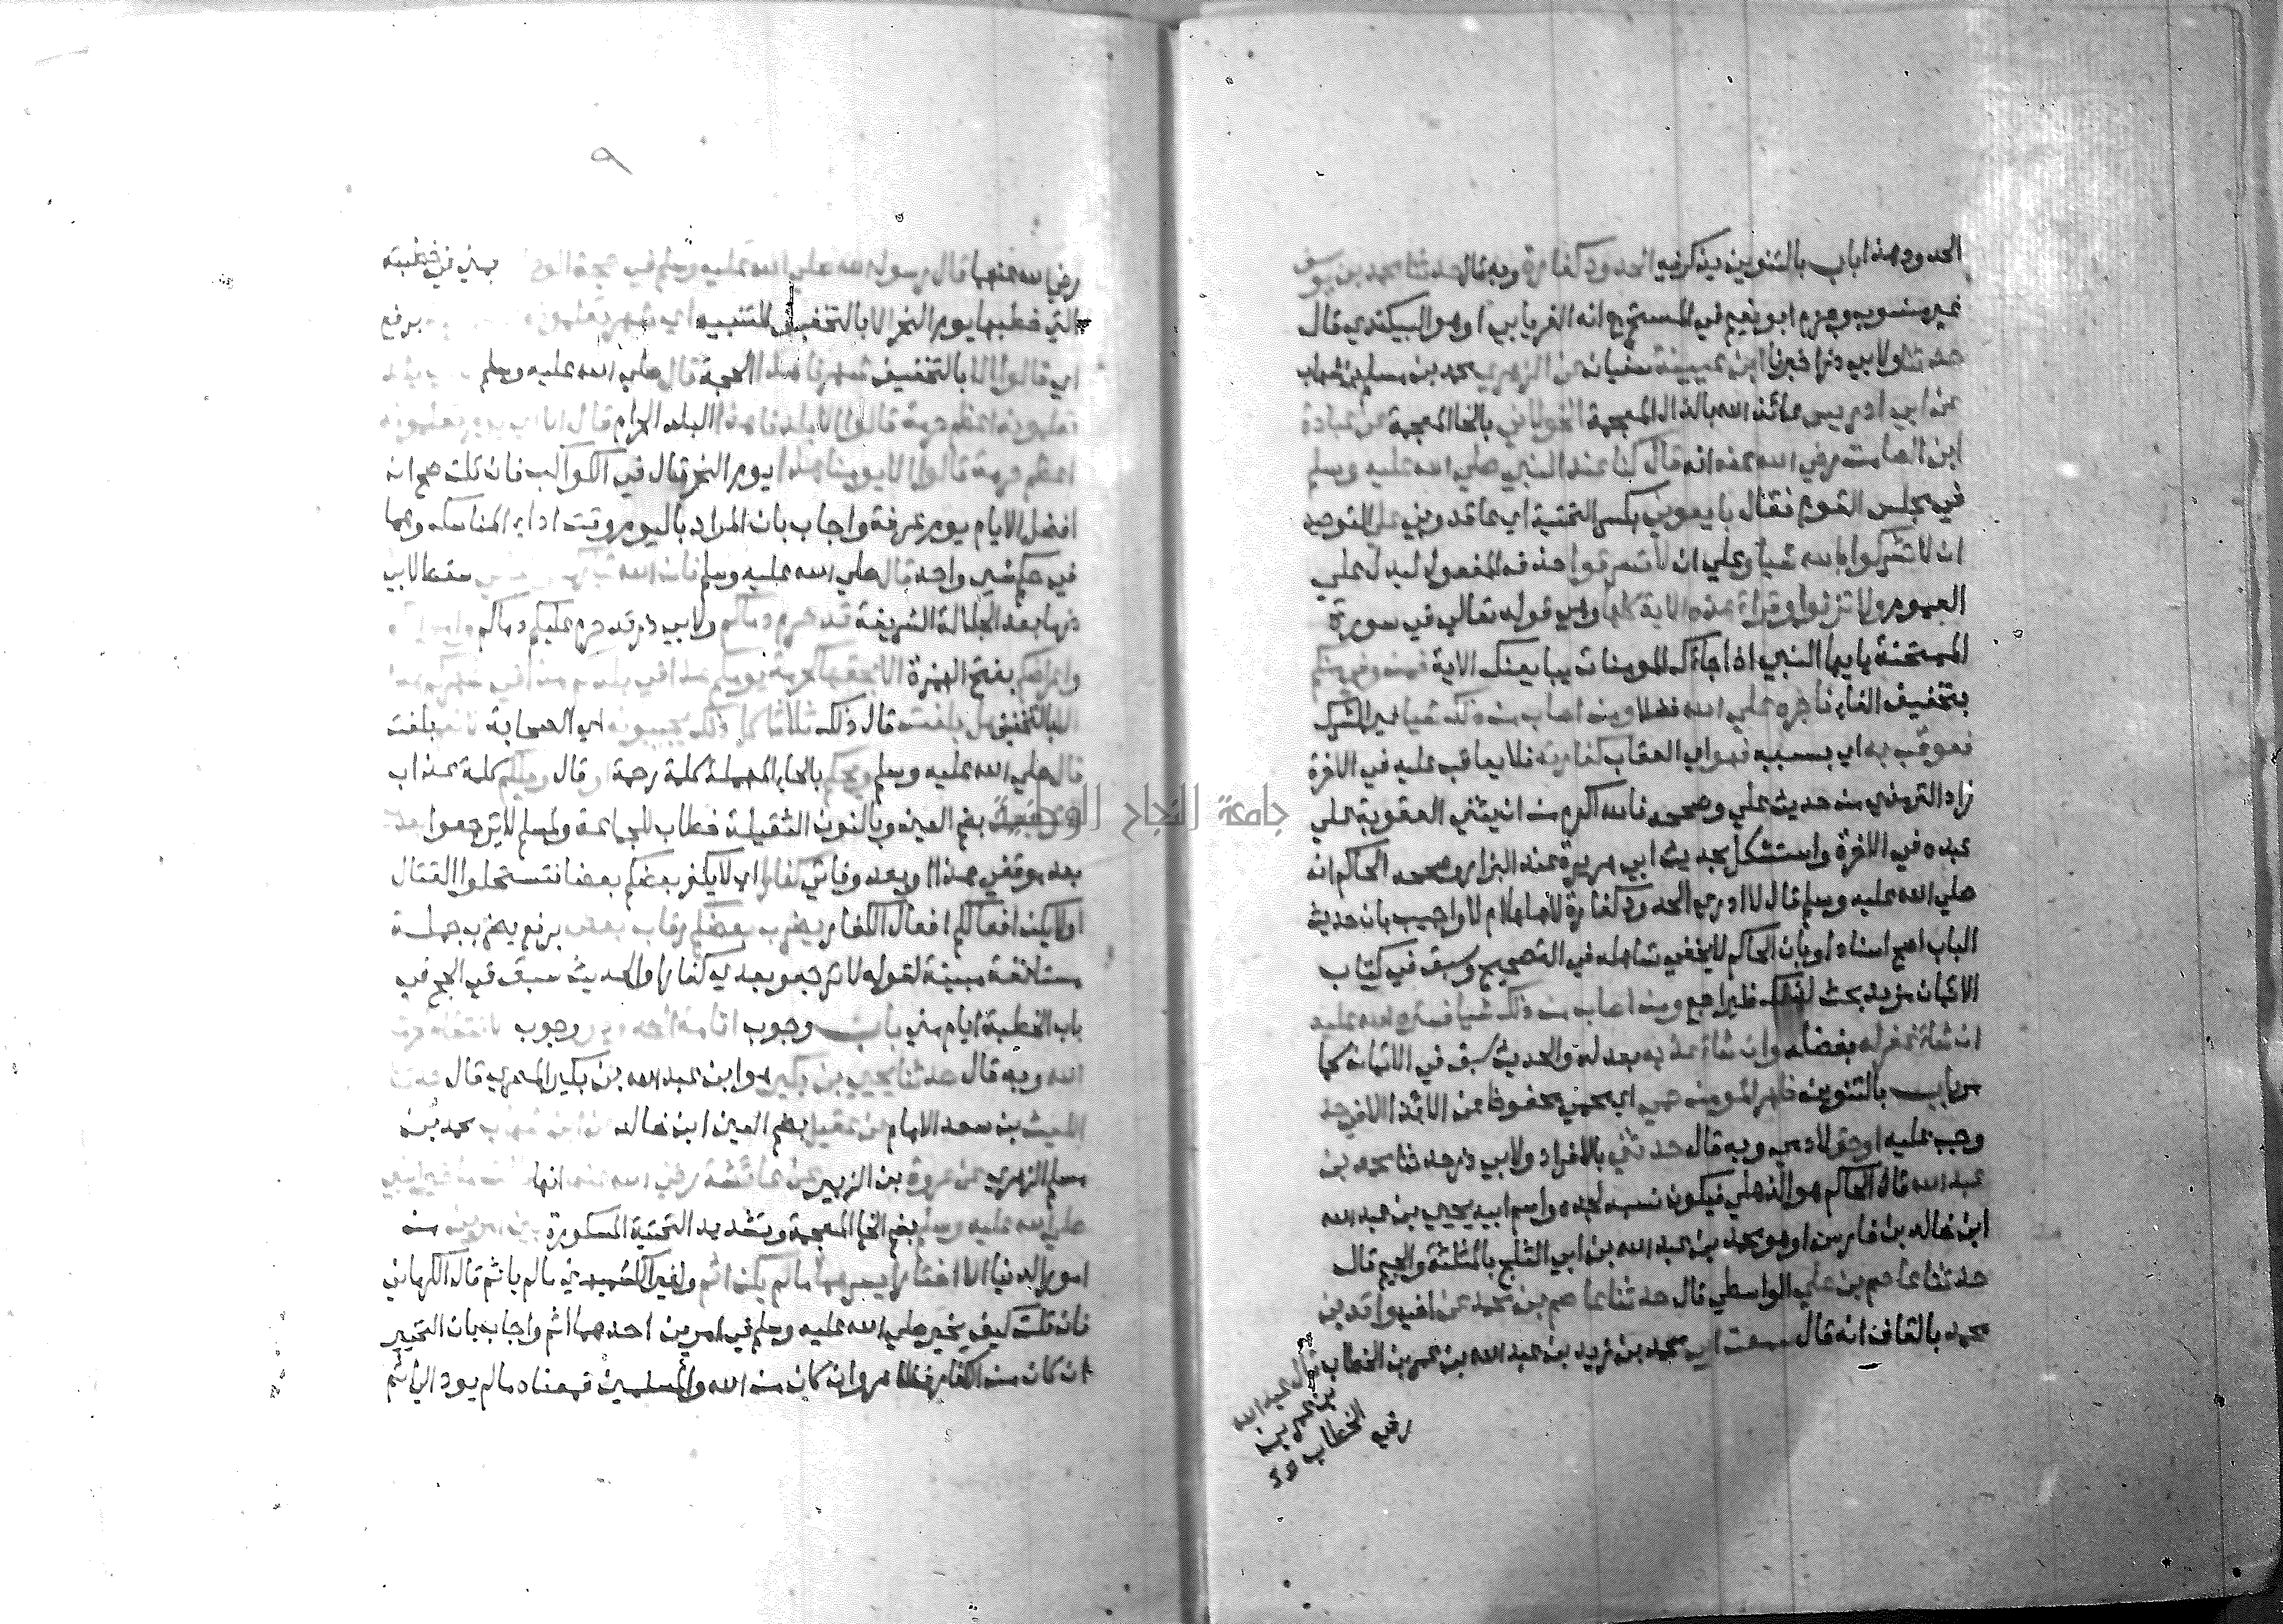 الحدود هذا باب بالتنوين يذكر فيه الحدود كفارة وبه قال حدثنا محمد بن يوسف
غير منسوب وجزم ابو نعيم في المستخرج انه الفريابي او هو البيكندي قال
حدثنا ولابي ذر اخبرنا ابن عيينة سفيان عن الزهري محمد بن مسلم بن شهاب
عن ابي ادريس عائذ الله بالذال المعجمة الخولاني بالخا المعجمة عن عبادة
ابن الصامت رضي الله عنه انه قال كنا عند النبي صلي الله عليه وسلم
في مجلس القوم فقال بايعوني بكسر التحتية اي عاقدوني علي التوحيد
ان لا تشركوا بالله شيا وعلي ان لا تسرقوا حذف المفعول ليدل علي
العموم ولا تزنوا وقراة هذه الاية كلها وهي قوله تعالي في سورة
الممتحنة يايها النبي اذا جاءك المومنات يبايعنك الاية فمن وفي منكم
بتخفيف الفاء فاجره علي الله فضلا ومن اصاب من ذلك شيا غير الشرك
فعوقب به اي بسببه فهو اي العقاب كفارته فلا يعاقب عليه في الاخرة
زاد الترمذي من حديث علي وصححه فالله اكرم من ان يثني العقوبة علي
عبده في الاخرة واستشكل بحديث ابي هريرة عند البزار وصححه الحاكم انه
صلي الله عليه وسلم قال لا ادري الحدود كفارة لاهلها ام لا واجيب بان حديث
الباب اصح اسنادا وبان الحاكم لا يخفي تساهله في التصحيح وسبق في كتاب
الايمان مزيد بحث لذلك فليراجع ومن اصاب من ذلك شيا فستره الله عليه
ان شاء غفر له بفضله وان شاء عذبه بعدله والحديث سبق في الايمان كما
مر باب بالتنوين ظهر المومن حمي اي محمي محفوظ من الايذاء الا في حد
وجب عليه او حق لادمي وبه قال حدثني بالافراد ولابي ذر حدثنا محمد بن
عبد الله قال الحاكم هو الذهلي فيكون نسبه لجده واسم ابيه يحيي بن عبد الله
ابن خالد بن فارس او هو محمد بن عبد الله بن ابي الثلج بالمثلثة والجيم قال
حدثنا عاصم بن علي الواسطي قال حدثنا عاصم بن محمد عن اخيه واقد بن
محمد بالقاف انه قال سمعت ابي محمد بن زيد بن عبد الله بن عمر بن الخطاب قال عبد الله
بن عمر بن
الخطاب
رضي
٩
رضي الله عنهما قال رسول الله صلي الله عليه وسلم في حجة الوداع بمني في خطبته
التي خطبها يوم النحر الا بالتخفيف للتنبيه اي شهر تعلمونه برفع
اي قالوا الا بالتخفيف شهرنا هذا الحجة قال صلي الله عليه وسلم
تعلمونه اعظم حرمة قالوا الا بلدنا هذا البلد الحرام قال الا اي يوم تعلمونه
اعظم حرمة قالوا الا يومنا هذا يوم النحر قال في الكواكب فان قلت صح ان
افضل الايام يوم عرفة واجاب بان المراد باليوم وقت اداء المناسك وهما
في حكم شي واحد قال صلي الله عليه وسلم فان الله سقط لابي
ذر ما بعد الجلالة الشريفة قد حرم دماكم ولابي ذر قد حرم عليكم دماكم واموالكم
واعراضكم بفتح الهمزة الا بحقها كحرمة يومكم هذا في بلدكم هذا في شهركم هذا
الا بالتخفيف هل بلغت قال ذلك ثلاثا كل ذلك يجيبونه اي الصحابة الا نعم بلغت
قال صلي الله عليه وسلم ويحكم بالحاء المهملة كلمة رحمة او قال ويلكم كلمة عذاب
لا ترجعن بضم العين وبالنون الثقيلة خطاب للجماعة ولمسلم لا ترجعوا بعدي
بعد موقفي هذا او بعد وفاتي كفارا اي لا يكفر بعضكم بعضا فتستحلوا القتال
او لا يكن افعالكم افعال الكفار يضرب بعضكم رقاب بعض برفع يضرب جملة
مستانفة مبينة لقوله لا ترجعو بعدي كفارا والحديث سبق في الحج في
باب الخطبة ايام مني باب وجوب اقامة الحدود وجوب الانتقام لحرمات
الله وبه قال حدثنا يحيي بن بكير هو ابن عبد الله بن بكير المصري قال حدثنا
الليث بن سعد الامام عن عقيل بضم العين ابن خالد عن ابن شهاب محمد بن
مسلم الزهري عن عروة بن الزبير عن عائشة رضي الله عنها انها قالت ما خير النبي
صلي الله عليه وسلم بضم الخا المعجمة وتشديد التحتية المكسورة بين امرين من
امور الدنيا الا اختار ايسرهما ما لم يكن اثم ولغير الكشميهني ما لم ياثم قال الكرماني
فان قلت كيف يخير صلي الله عليه وسلم في امرين احدهما اثم واجاب بان التخيير
ان كان من الكفار فظاهر وان كان من الله والمسلمين فمعناه ما لم يود الي اثم
جامعة النجاح الوطنية